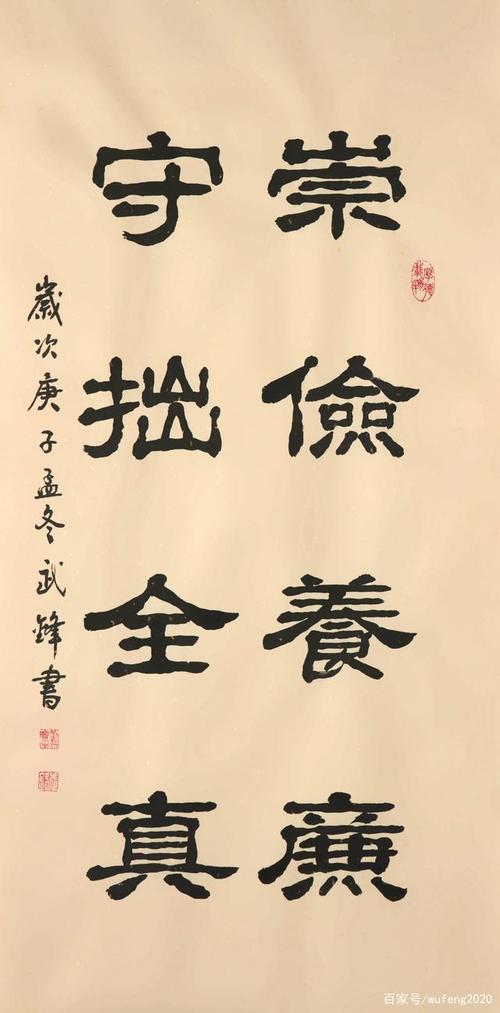 崇儉養廉
守拙全真
歲次庚子孟冬武鋒書
厚德載物
百家号/wufeng2020